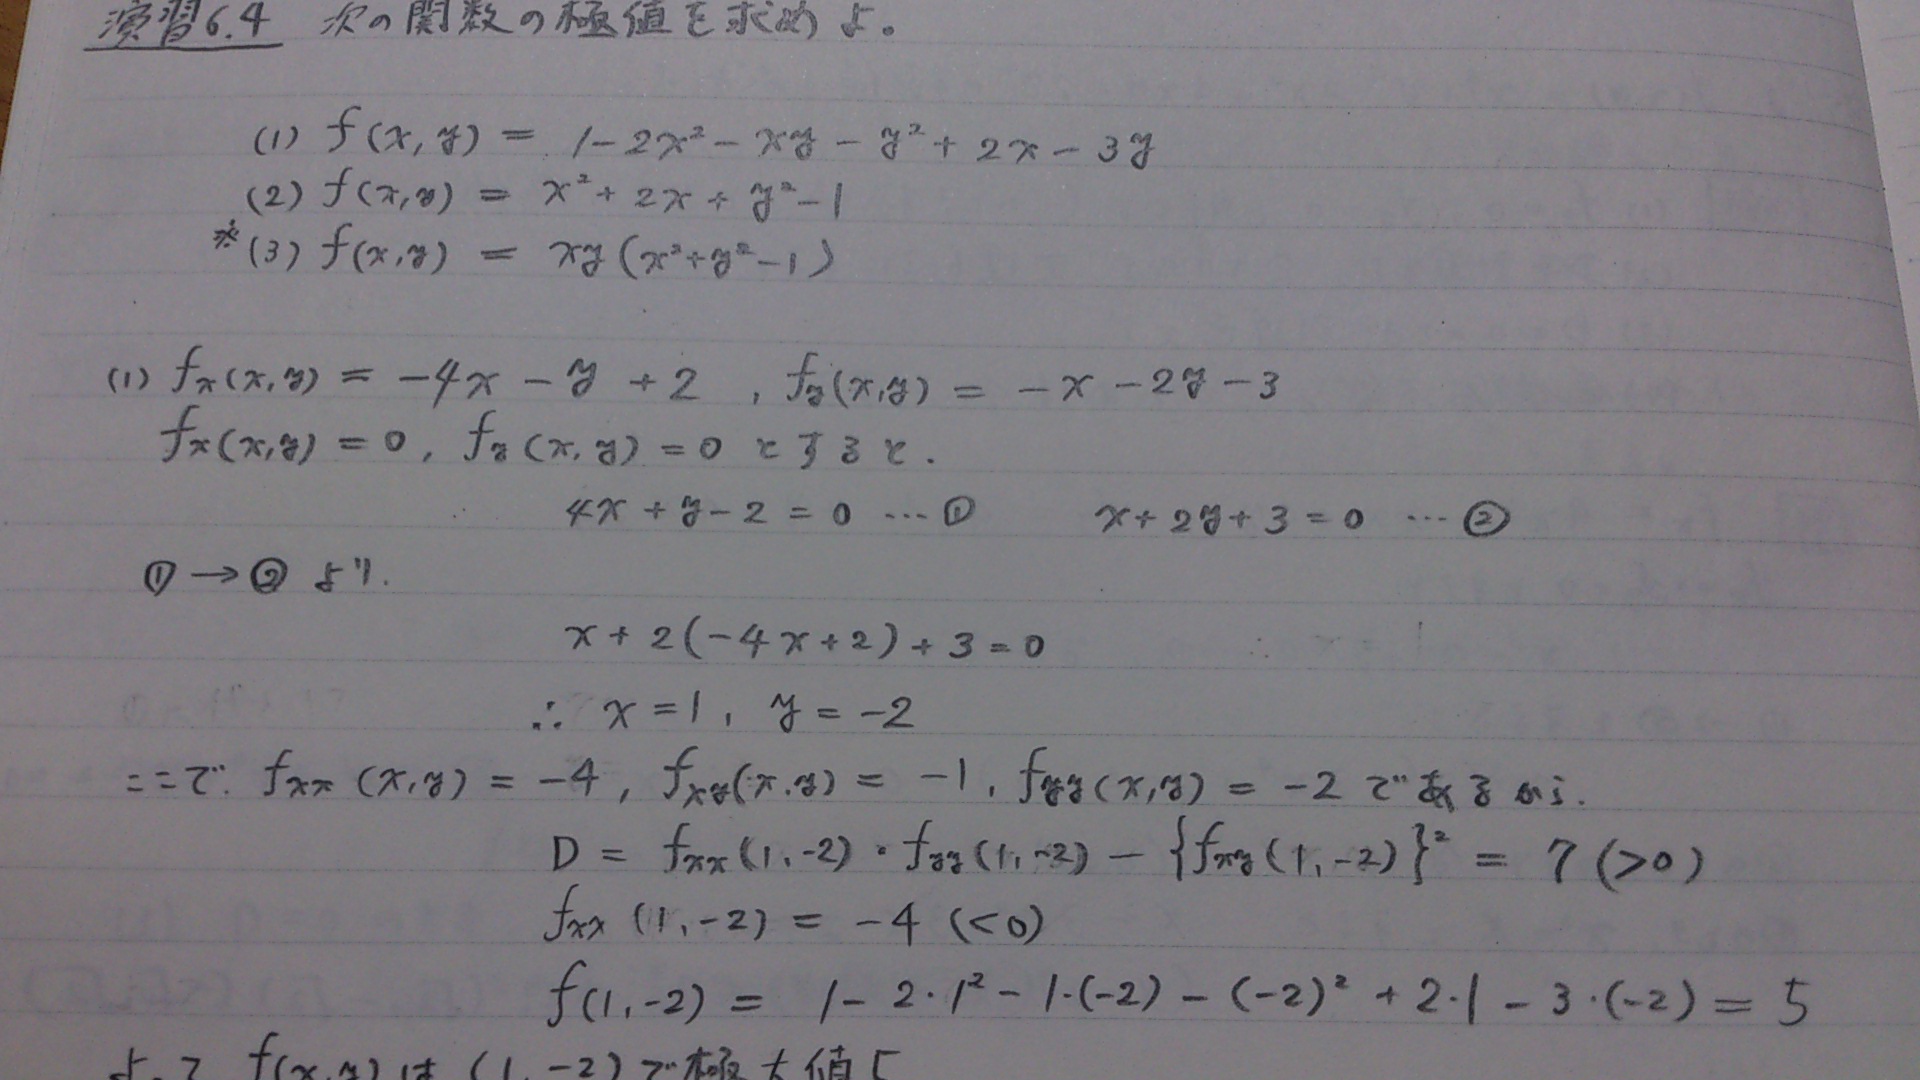 演習6.4 次の関数の極値を求めよ。
(1) f(x,y) = 1-2x²-xy-y²+2x-3y
(2) f(x,y) = x²+2x+y²-1
※(3) f(x,y) = xy(x²+y²-1)
(1) fx(x,y) = -4x-y+2, fy(x,y) = -x-2y-3
fx(x,y)=0, fy(x,y)=0とすると.
4x+y-2=0 …① x+2y+3=0 …②
①→②より.
x+2(-4x+2)+3=0
∴ x=1, y=-2
ここで. fxx(x,y) = -4, fxy(x,y) = -1, fyy(x,y) = -2であるから.
D = fxx(1,-2)・fyy(1,-2)-{fxy(1,-2)}² = 7(>0)
fxx(1,-2) = -4 (<0)
f(1,-2) = 1-2・1²-1・(-2)-(-2)²+2・1-3・(-2) = 5
よって f(x,y)は(1,-2)で極大値5